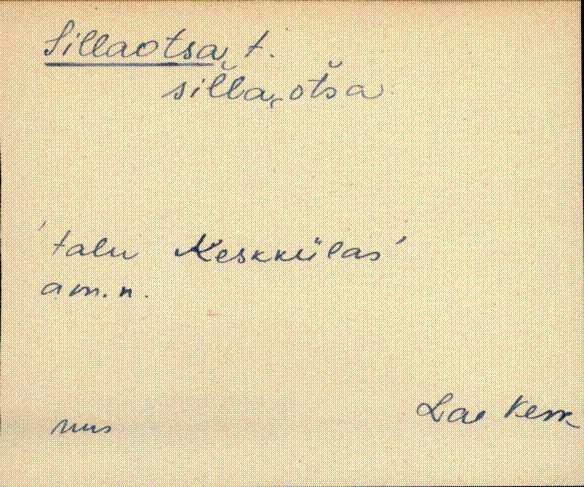 Sillaotsa, t.
sil̆la‿ots̆a
'talu Keskkülas'
am.n.
Lae Kesk